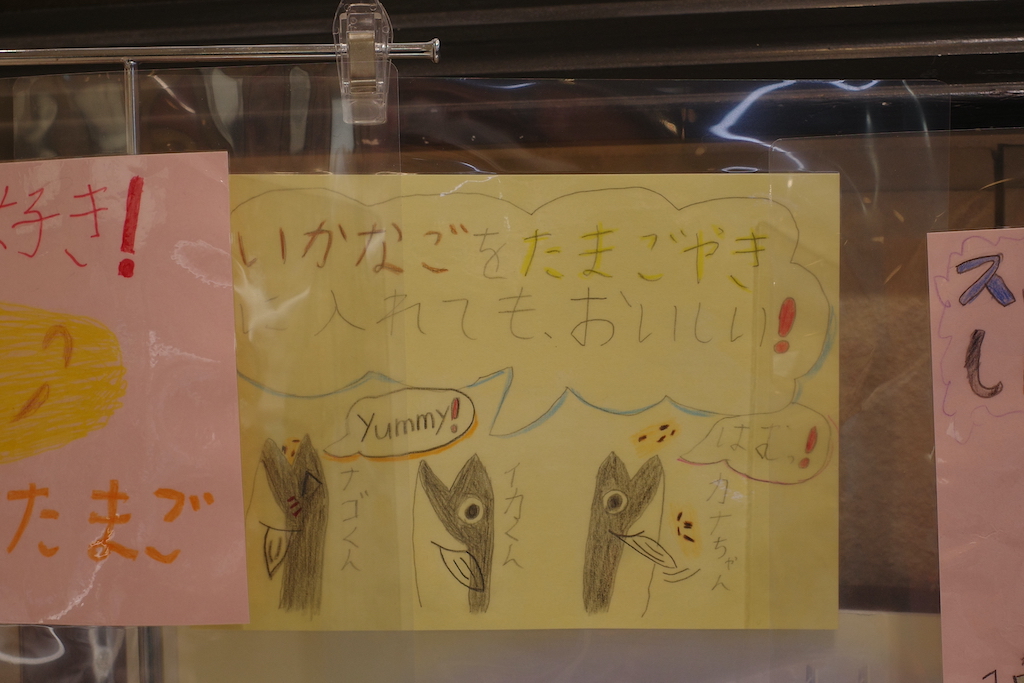 好き!
たまご
いかなごをたまごやき
に入れても、おいしい!
Yummy!
はむっ!
ナゴくん
イカくん
カナちゃん
ス
し